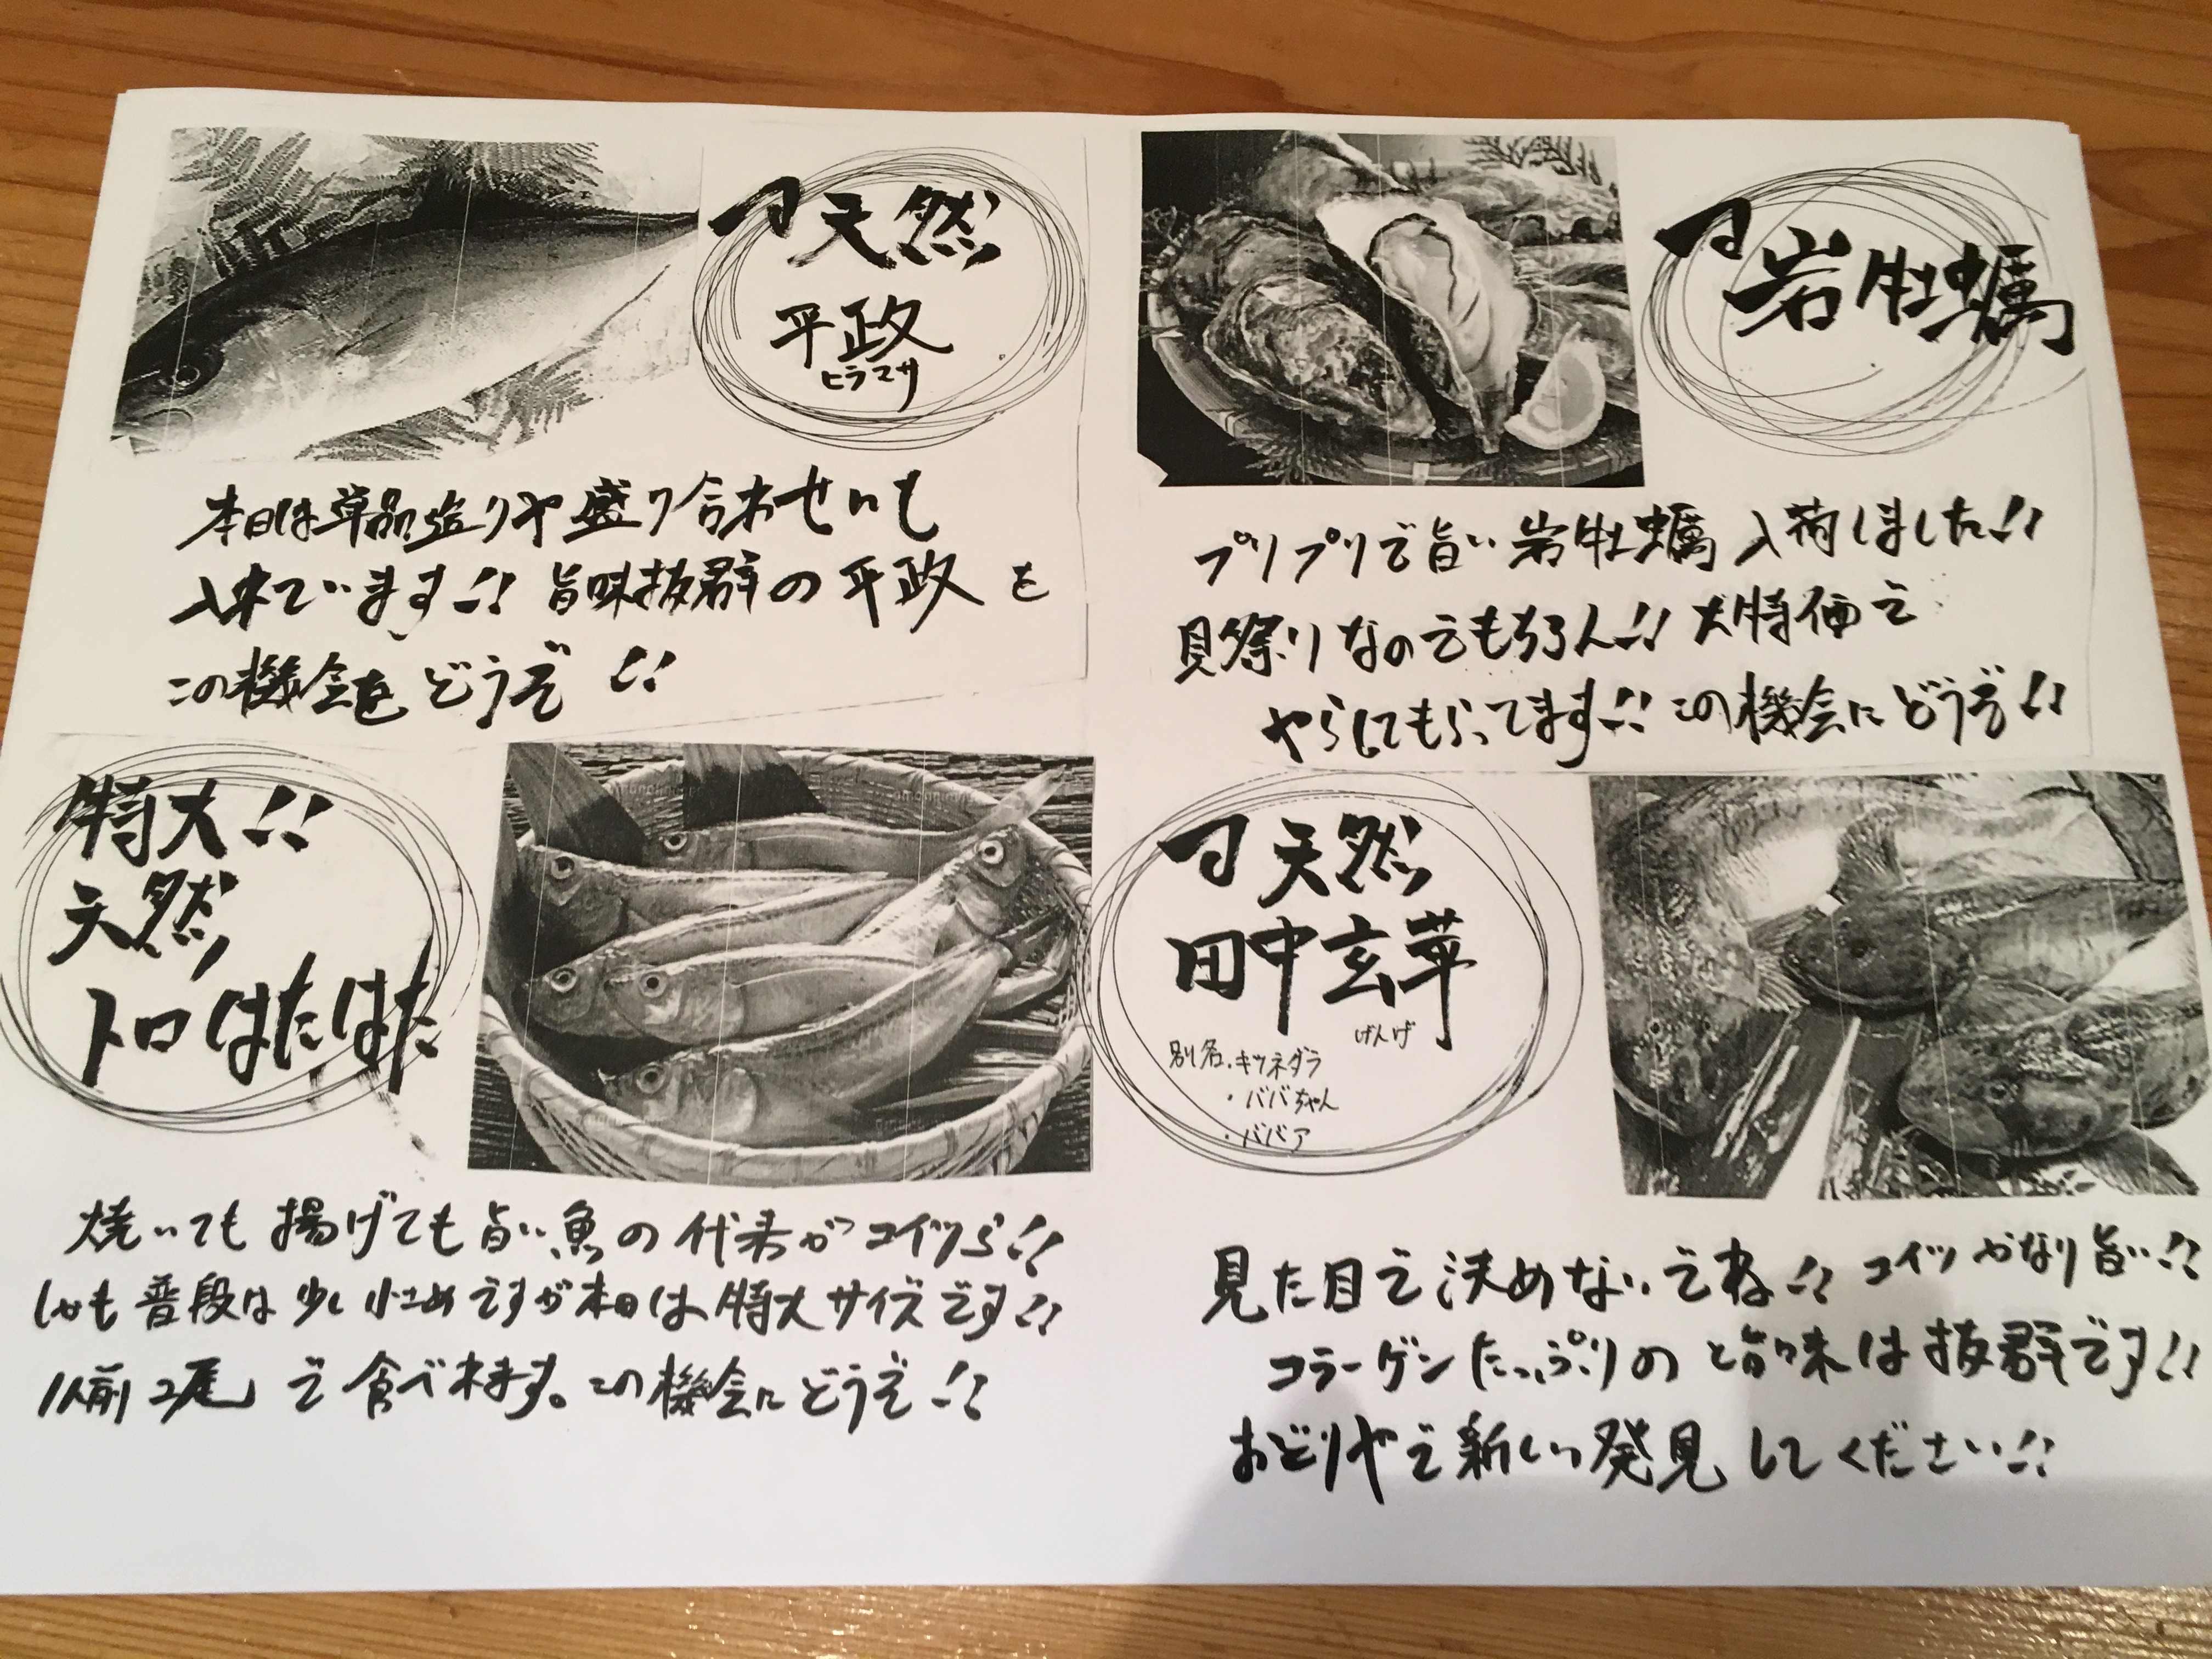 天然
平政
ヒラマサ
本日は単品造りや盛り合わせにも
入来ています!! 旨味抜群の平政を
この機会を どうぞ!!
岩牡蠣
プリプリで旨い岩牡蠣 入荷しました!!
貝祭りなのでもちろん!! 大特価で
やらしてもらってます!! この機会にどうぞ!!
特大!!
天然
トロはたはた
焼いても 揚げても 旨い魚の 代表がコイツら!!
しかも普段は少し小さめですが本日は特大サイズです!!
1人前 2尾 で 食べれます。この機会に どうぞ!!
天然
田中玄華
げんげ
別名・キツネダラ
・ババちゃん
・ババア
見た目で決めないでね!! コイツかなり旨い!!
コラーゲンたっぷりの と旨味は抜群です!!
おどりやで新しい発見 してください!!